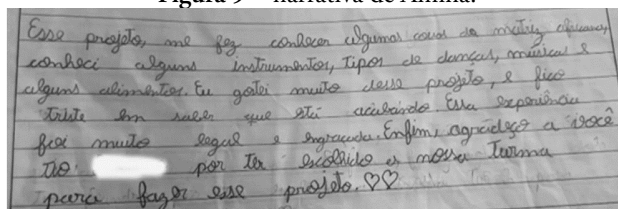 Figura 9 – narrativa de Amina.
Esse projeto, me fez conhecer algumas coisas da matriz africana,
conheci alguns instrumentos, tipos de danças, músicas e
alguns alimentos. Eu gostei muito desse projeto, e fico
triste em saber que está acabando. Essa experiência
foi muito legal e engraçada. Enfim, agradeço a você
tio por ter escolhido a nossa turma
para fazer esse projeto. ♡♡